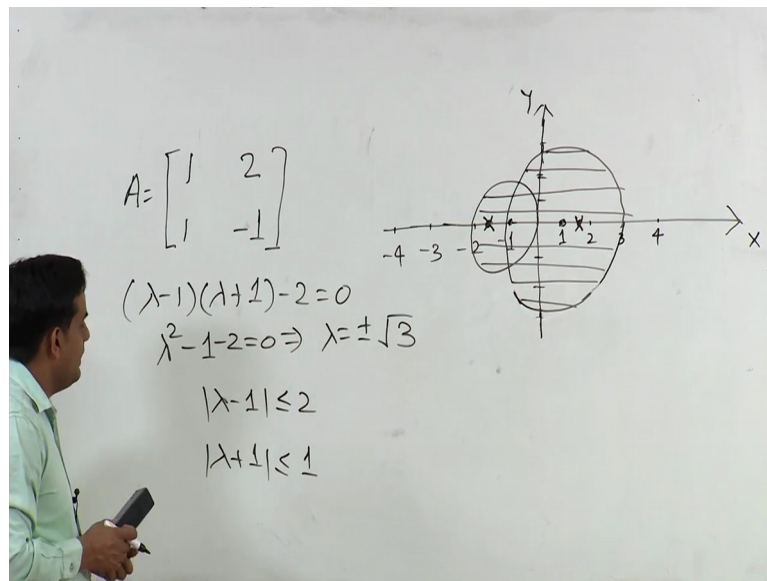 A= [ 1 2
1 -1 ]
(λ-1)(λ+1)-2=0
λ²-1-2=0⇒ λ=±√3
|λ-1|≤2
|λ+1|≤1
Y
-4 -3 -2 -1 1 2 3 4
X